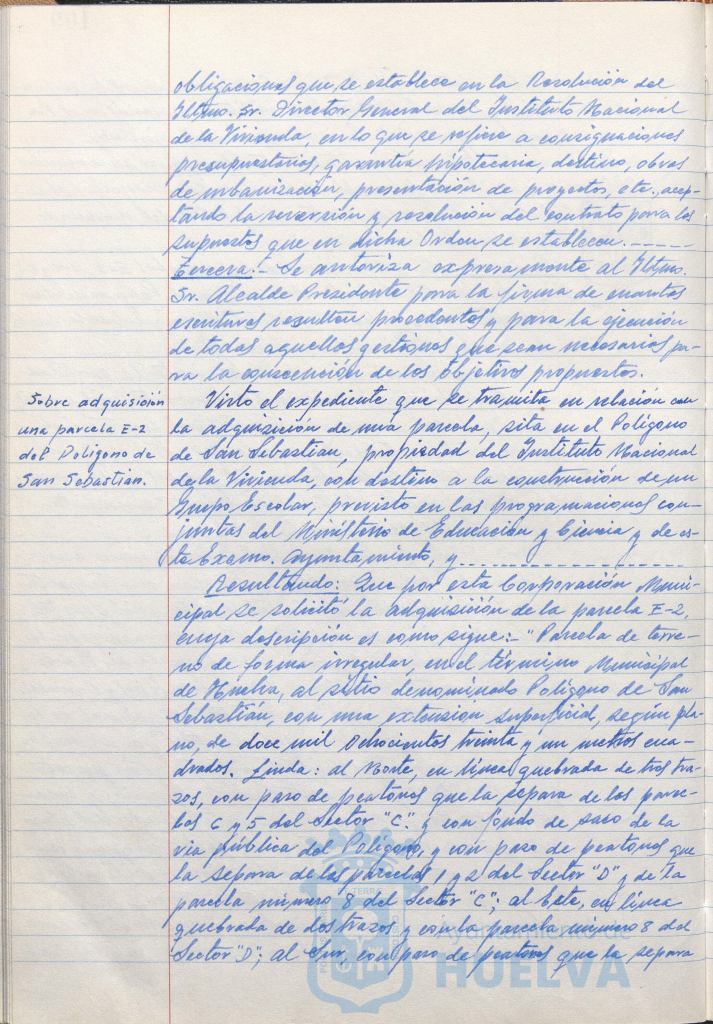 obligaciones que se establece en la Resolución del
Iltmo. Sr. Director General del Instituto Nacional
de la Vivienda, en lo que se refiere a consignaciones
presupuestarias, garantia hipotecaria, destino, obras
de urbanización, presentación de proyectos, etc., acep-
tando la reversión y resolución del contrato para los
supuestos que en dicha Orden se establecen.-----
Tercera:- Se autoriza expresamente al Iltmo.
Sr. Alcalde Presidente para la firma de cuantas
escrituras resulten procedentes y para la ejecución
de todas aquellas gestiones que sean necesarias pa-
ra la consecución de los objetivos propuestos.
Sobre adquisición
una parcela E-2
del Polígono de
San Sebastian.
Visto el expediente que se tramita en relación con
la adquisición de una parcela, sita en el Polígono
de San Sebastian, propiedad del Instituto Nacional
de la Vivienda, con destino a la construcción de un
Grupo Escolar, previsto en las programaciones con-
juntas del Ministerio de Educación y Ciencia y de es-
te Excmo. Ayuntamiento, y--------------------
Resultando: Que por esta Corporación Muni-
cipal se solicitó la adquisición de la parcela E-2,
cuya descripción es como sigue:- "Parcela de terre-
no de forma irregular, en el término Municipal
de Huelva, al sitio denominado Polígono de San
Sebastián, con una extension superficial, según pla-
no, de doce mil Ochocientos treinta y un metros cua-
drados. Linda: al Norte, en línea quebrada de tres tra-
zos, con paso de peatones que la separa de las parce-
las 6 y 5 del Sector "C" y con fondo de saco de la
via pública del Polígono, y con paso de peatones que
la separa de las parcelas 1 y 2 del Sector "D" y de la
parcela número 8 del Sector "C"; al Este, en línea
quebrada de dos trazos y con la parcela número 8 del
Sector "D"; al Sur, con paso de peatones que la separa
Ayuntamiento de
HUELVA